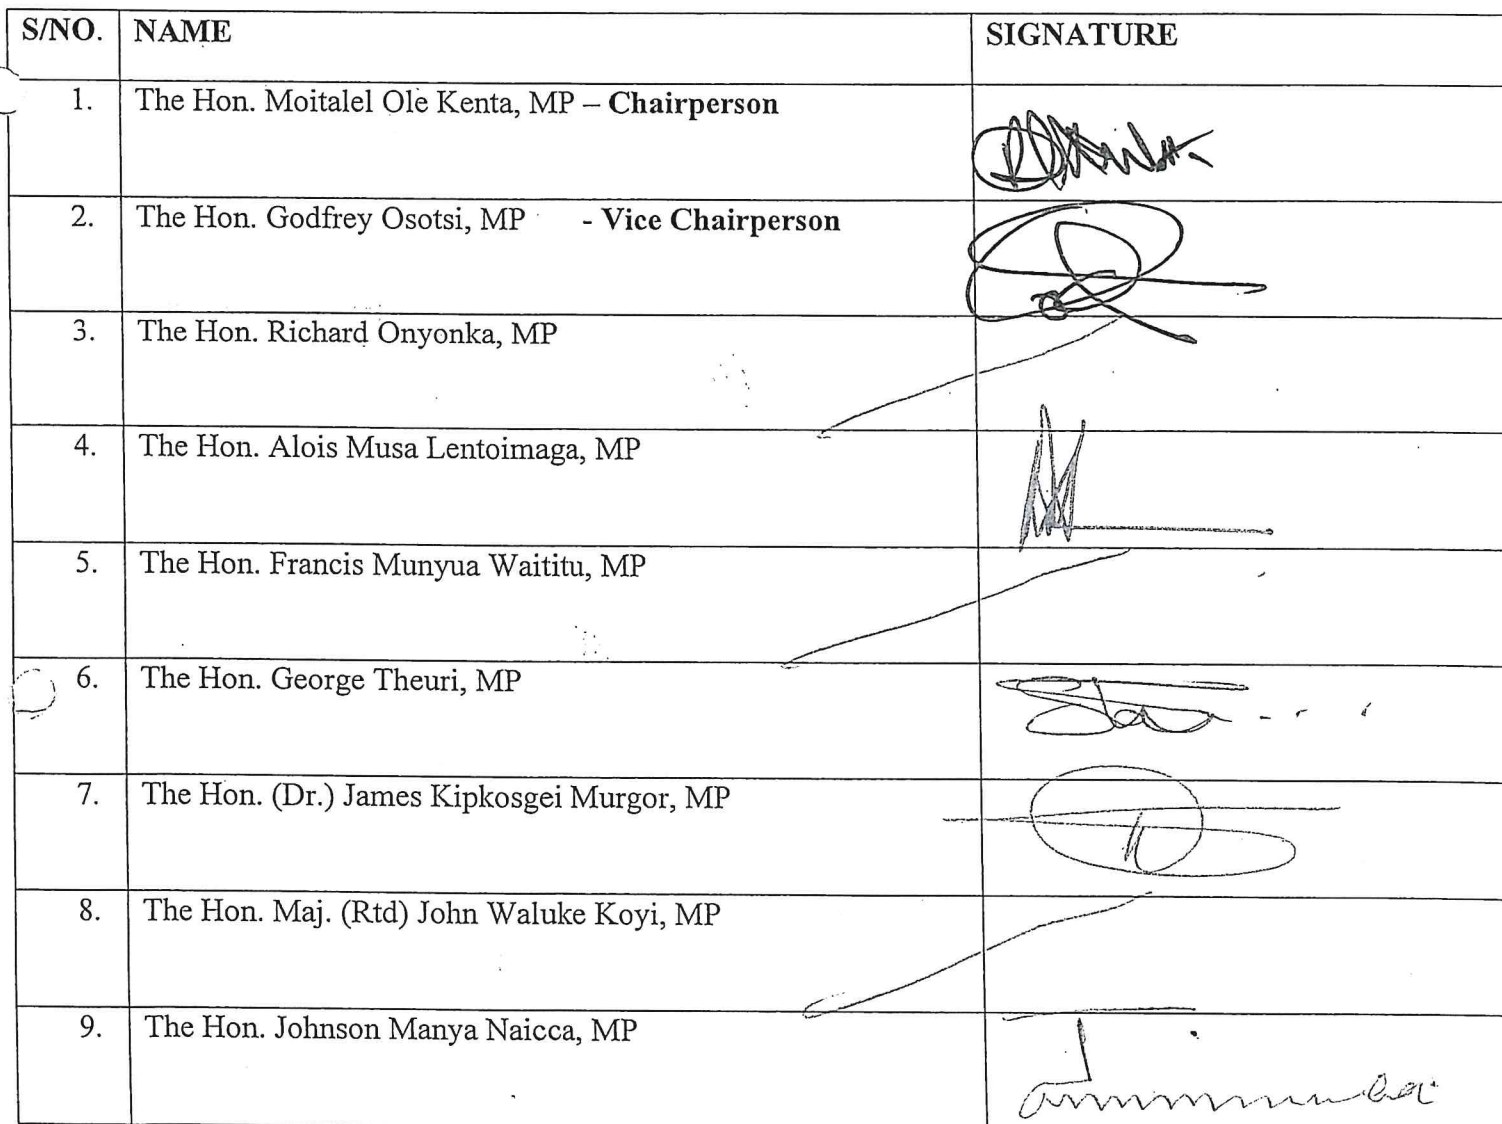 S/NO. NAME SIGNATURE
1. The Hon. Moitalel Ole Kenta, MP – Chairperson
2. The Hon. Godfrey Osotsi, MP - Vice Chairperson
3. The Hon. Richard Onyonka, MP
4. The Hon. Alois Musa Lentoimaga, MP
5. The Hon. Francis Munyua Waititu, MP
6. The Hon. George Theuri, MP
7. The Hon. (Dr.) James Kipkosgei Murgor, MP
8. The Hon. Maj. (Rtd) John Waluke Koyi, MP
9. The Hon. Johnson Manya Naicca, MP